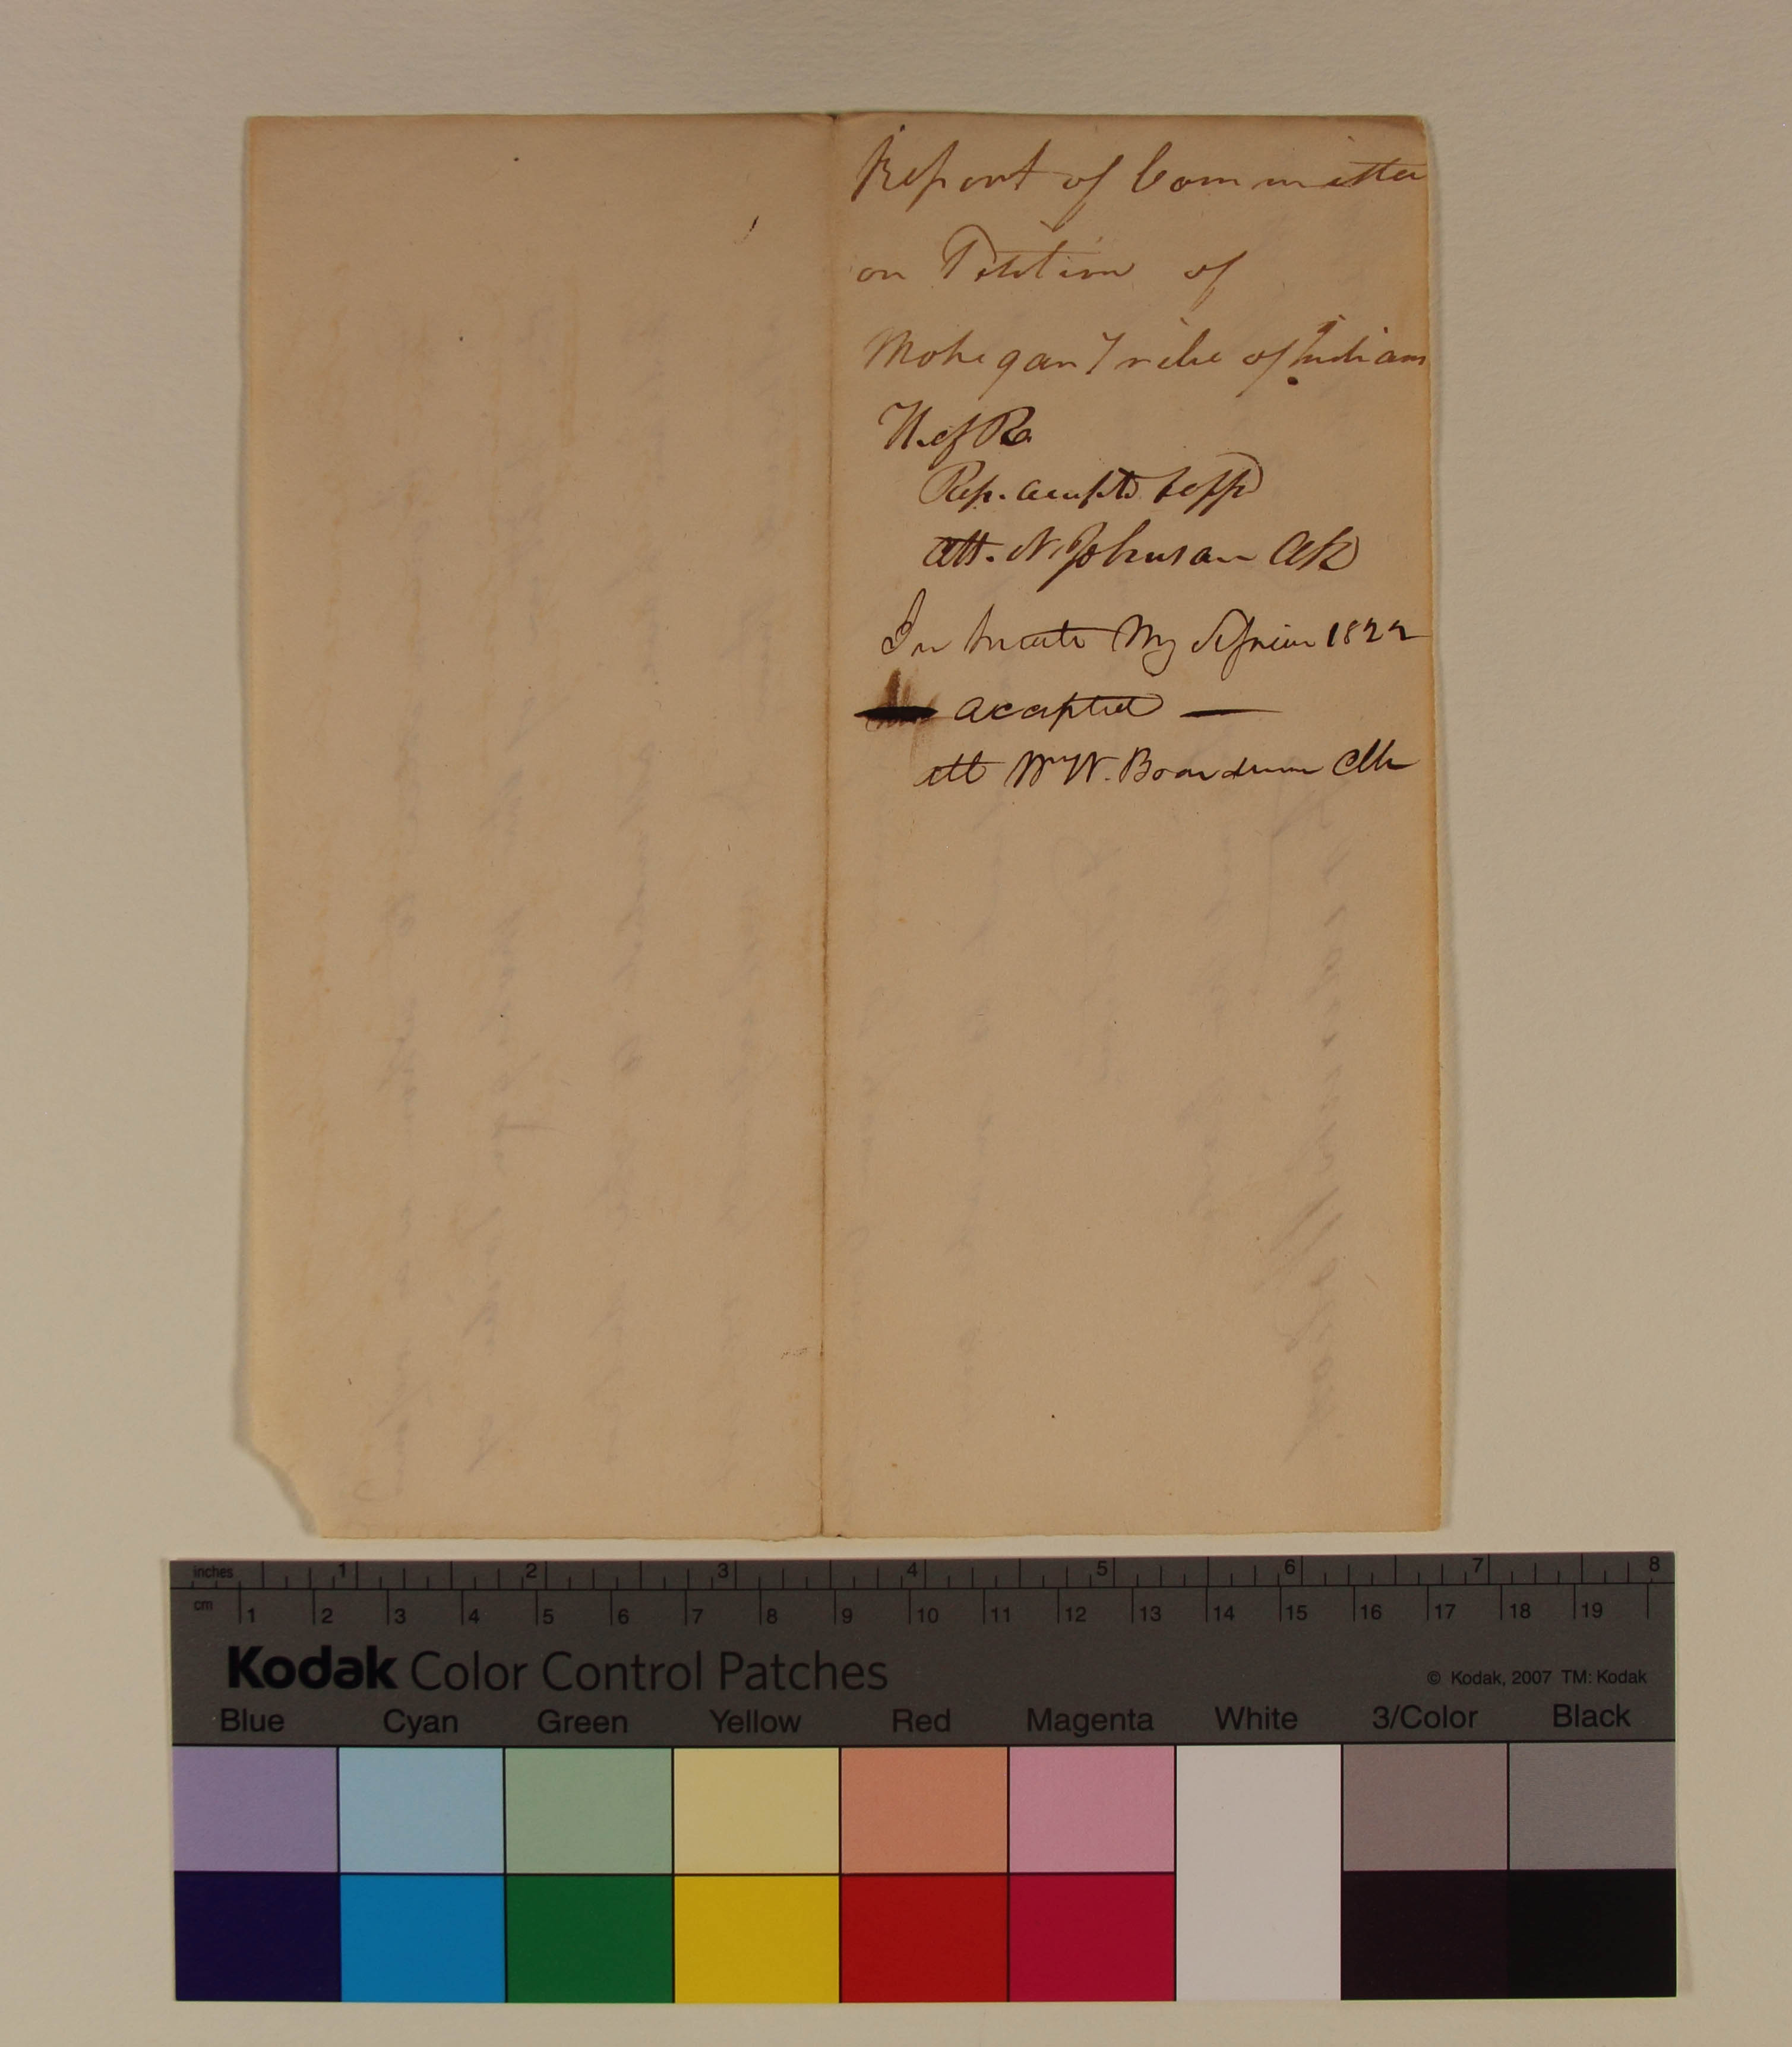 Report of Committee
on Petition of
Mohegan Tribe of Indians
H. of R.
Rep. accepted &
att. N. Johnson Clk
In Senate May Session 1822
accepted —
att Wm W. Boardman Clk
inches 1 2 3 4 5 6 7 8
cm 1 2 3 4 5 6 7 8 9 10 11 12 13 14 15 16 17 18 19
Kodak Color Control Patches
© Kodak, 2007 TM: Kodak
Blue Cyan Green Yellow Red Magenta White 3/Color Black